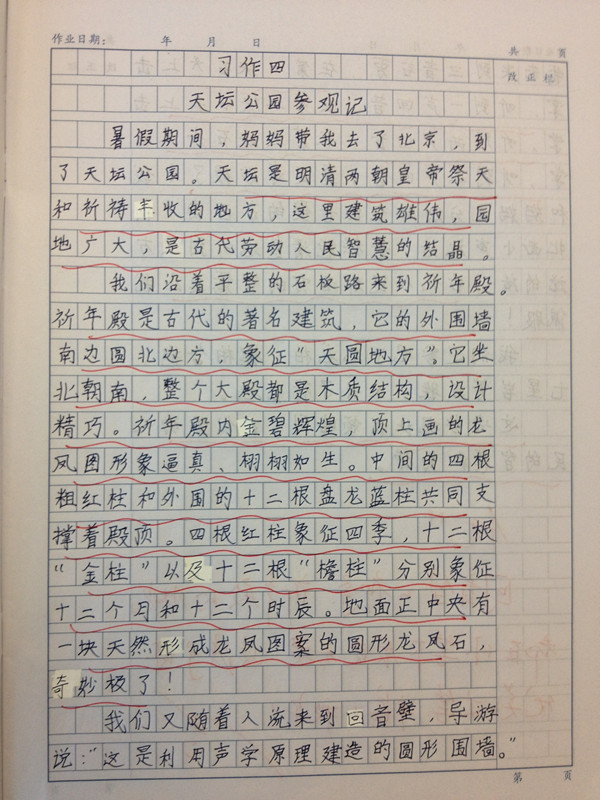 作业日期： 年 月 日
共 页
习作四
改正栏
天坛公园参观记
暑假期间，妈妈带我去了北京，到
了天坛公园。天坛是明清两朝皇帝祭天
和祈祷丰收的地方，这里建筑雄伟，园
地广大，是古代劳动人民智慧的结晶。
我们沿着平整的石板路来到祈年殿。
祈年殿是古代的著名建筑，它的外围墙
南边圆北边方，象征“天圆地方”。它坐
北朝南，整个大殿都是木质结构，设计
精巧。祈年殿内金碧辉煌，顶上画的龙
凤图形象逼真、栩栩如生。中间的四根
粗红柱和外围的十二根盘龙蓝柱共同支
撑着殿顶。四根红柱象征四季，十二根
“金柱”以及十二根“檐柱”分别象征
十二个月和十二个时辰。地面正中央有
一块天然形成龙凤图案的圆形龙凤石，
奇妙极了！
我们又随着人流来到回音壁，导游
说：“这是利用声学原理建造的圆形围墙。”
第 页